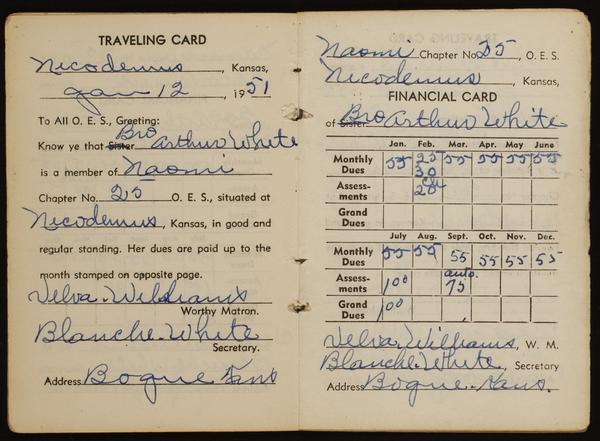 TRAVELING CARD
Nicodemus, Kansas,
Jan 12, 1951
To All O. E. S., Greeting:
Know ye that Sister Bro Arthur White
is a member of Naomi
Chapter No. 25 O. E. S., situated at
Nicodemus, Kansas, in good and
regular standing. Her dues are paid up to the
month stamped on opposite page.
Velva. Williams
Worthy Matron.
Blanche. White
Secretary.
Address Bogue Kans
Naomi Chapter No. 35, O. E. S.
Nicodemus, Kansas,
FINANCIAL CARD
of Sister Bro Arthur White
Jan. Feb. Mar. Apr. May June
Monthly Dues 55 25 30 55 55 55 55
Assess-ments 20
Grand Dues
July Aug. Sept. Oct. Nov. Dec.
Monthly Dues 55 55 55 55 55 55
Assess-ments 1 00 auto. 75
Grand Dues 1 00
Velva. Williams, W. M.
Blanche. White, Secretary
Address Bogue. Kans.